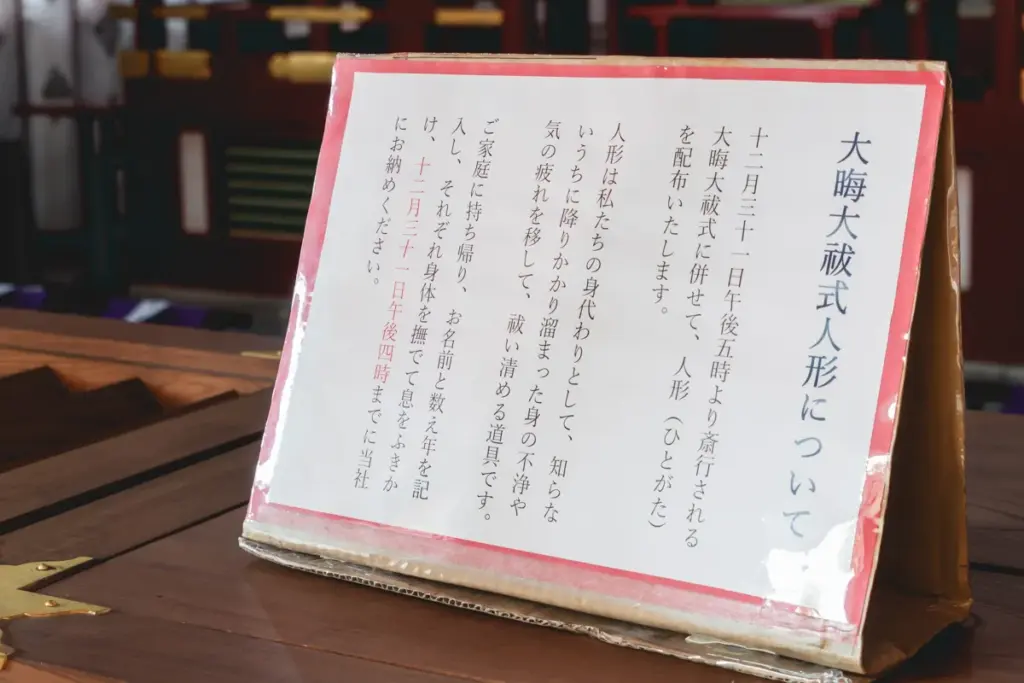 大晦大祓式人形について
十二月三十一日午後五時より斎行される
大晦大祓式に併せて、人形（ひとがた）
を配布いたします。
人形は私たちの身代わりとして、知らな
いうちに降りかかり溜まった身の不浄や
気の疲れを移して、祓い清める道具です。
ご家庭に持ち帰り、お名前と数え年を記
入し、それぞれ身体を撫でて息をふきか
け、十二月三十一日午後四時までに当社
にお納めください。